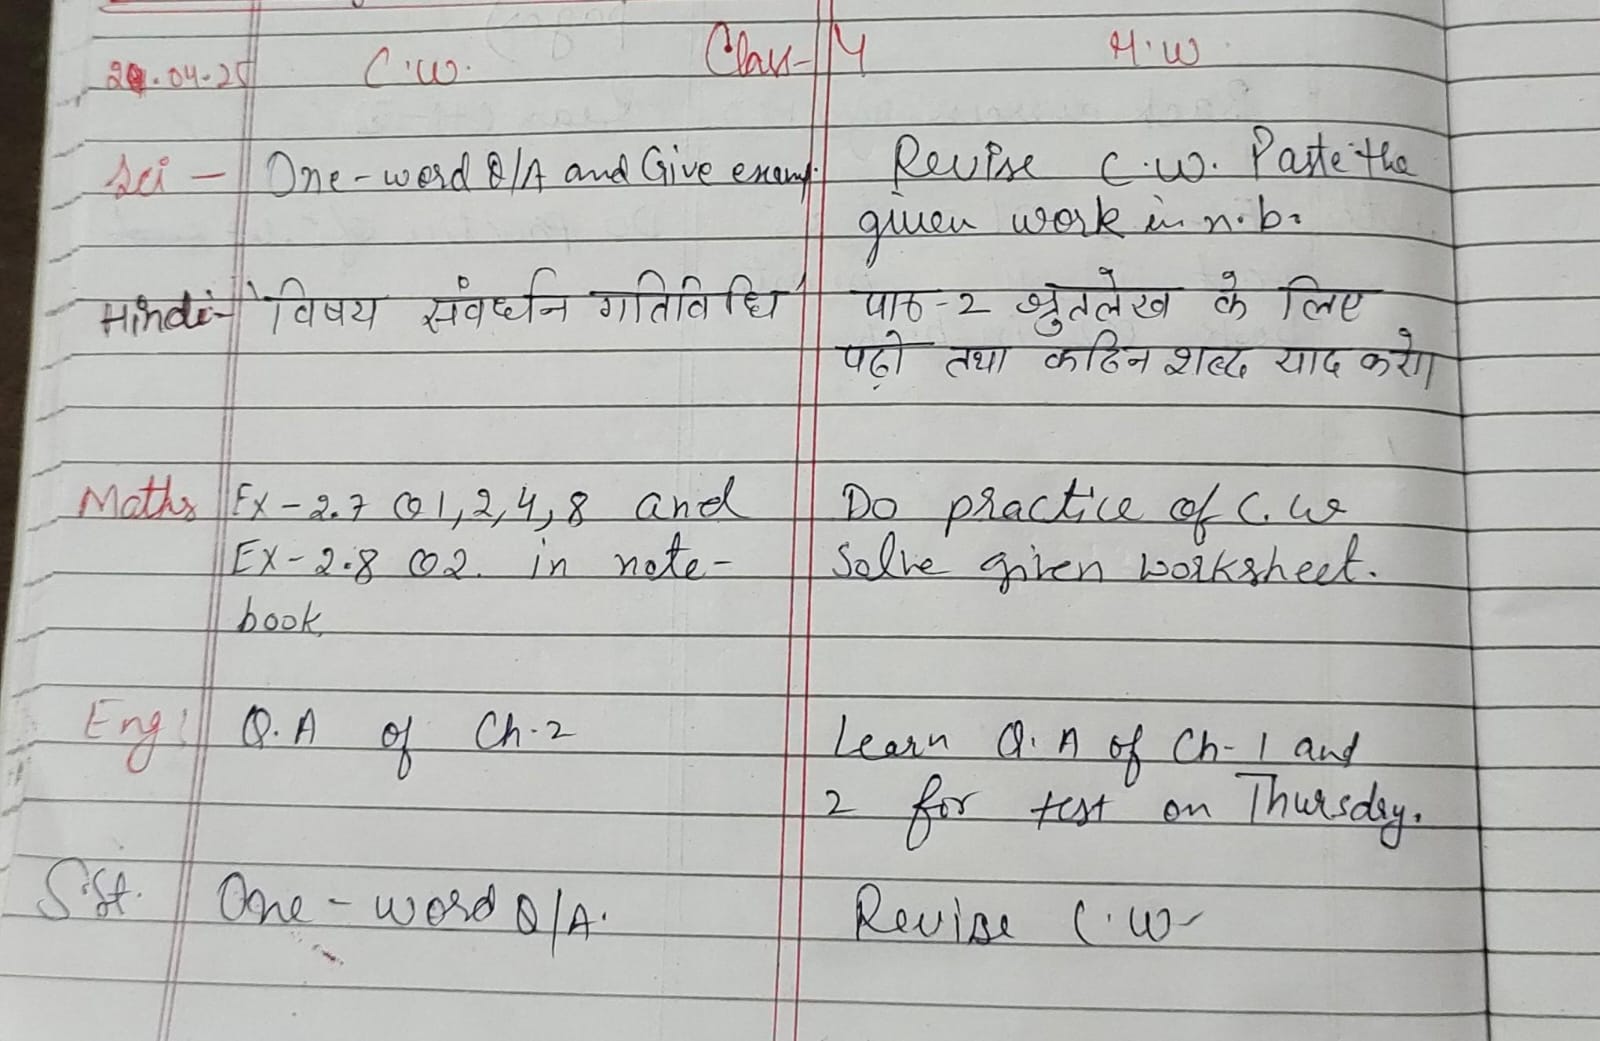 .04.25 C.W. Class-4 H.W
Sci - One-word Q/A and Give examp. Revise C.W. Paste the
given work in n.b.
Hindi- 'विषय संवर्धन गतिविधि' पाठ-2 श्रुतलेख के लिए
पढ़ो तथा कठिन शब्द याद करो।
Maths Ex-2.7 Q1,2,4,8 and Do practice of C.W
Ex-2.8 Q2. in note- Solve given worksheet.
book
Eng: Q.A of Ch.2 Learn Q.A of Ch-1 and
2 for test on Thursday.
S.St. One-word Q/A. Revise C.W